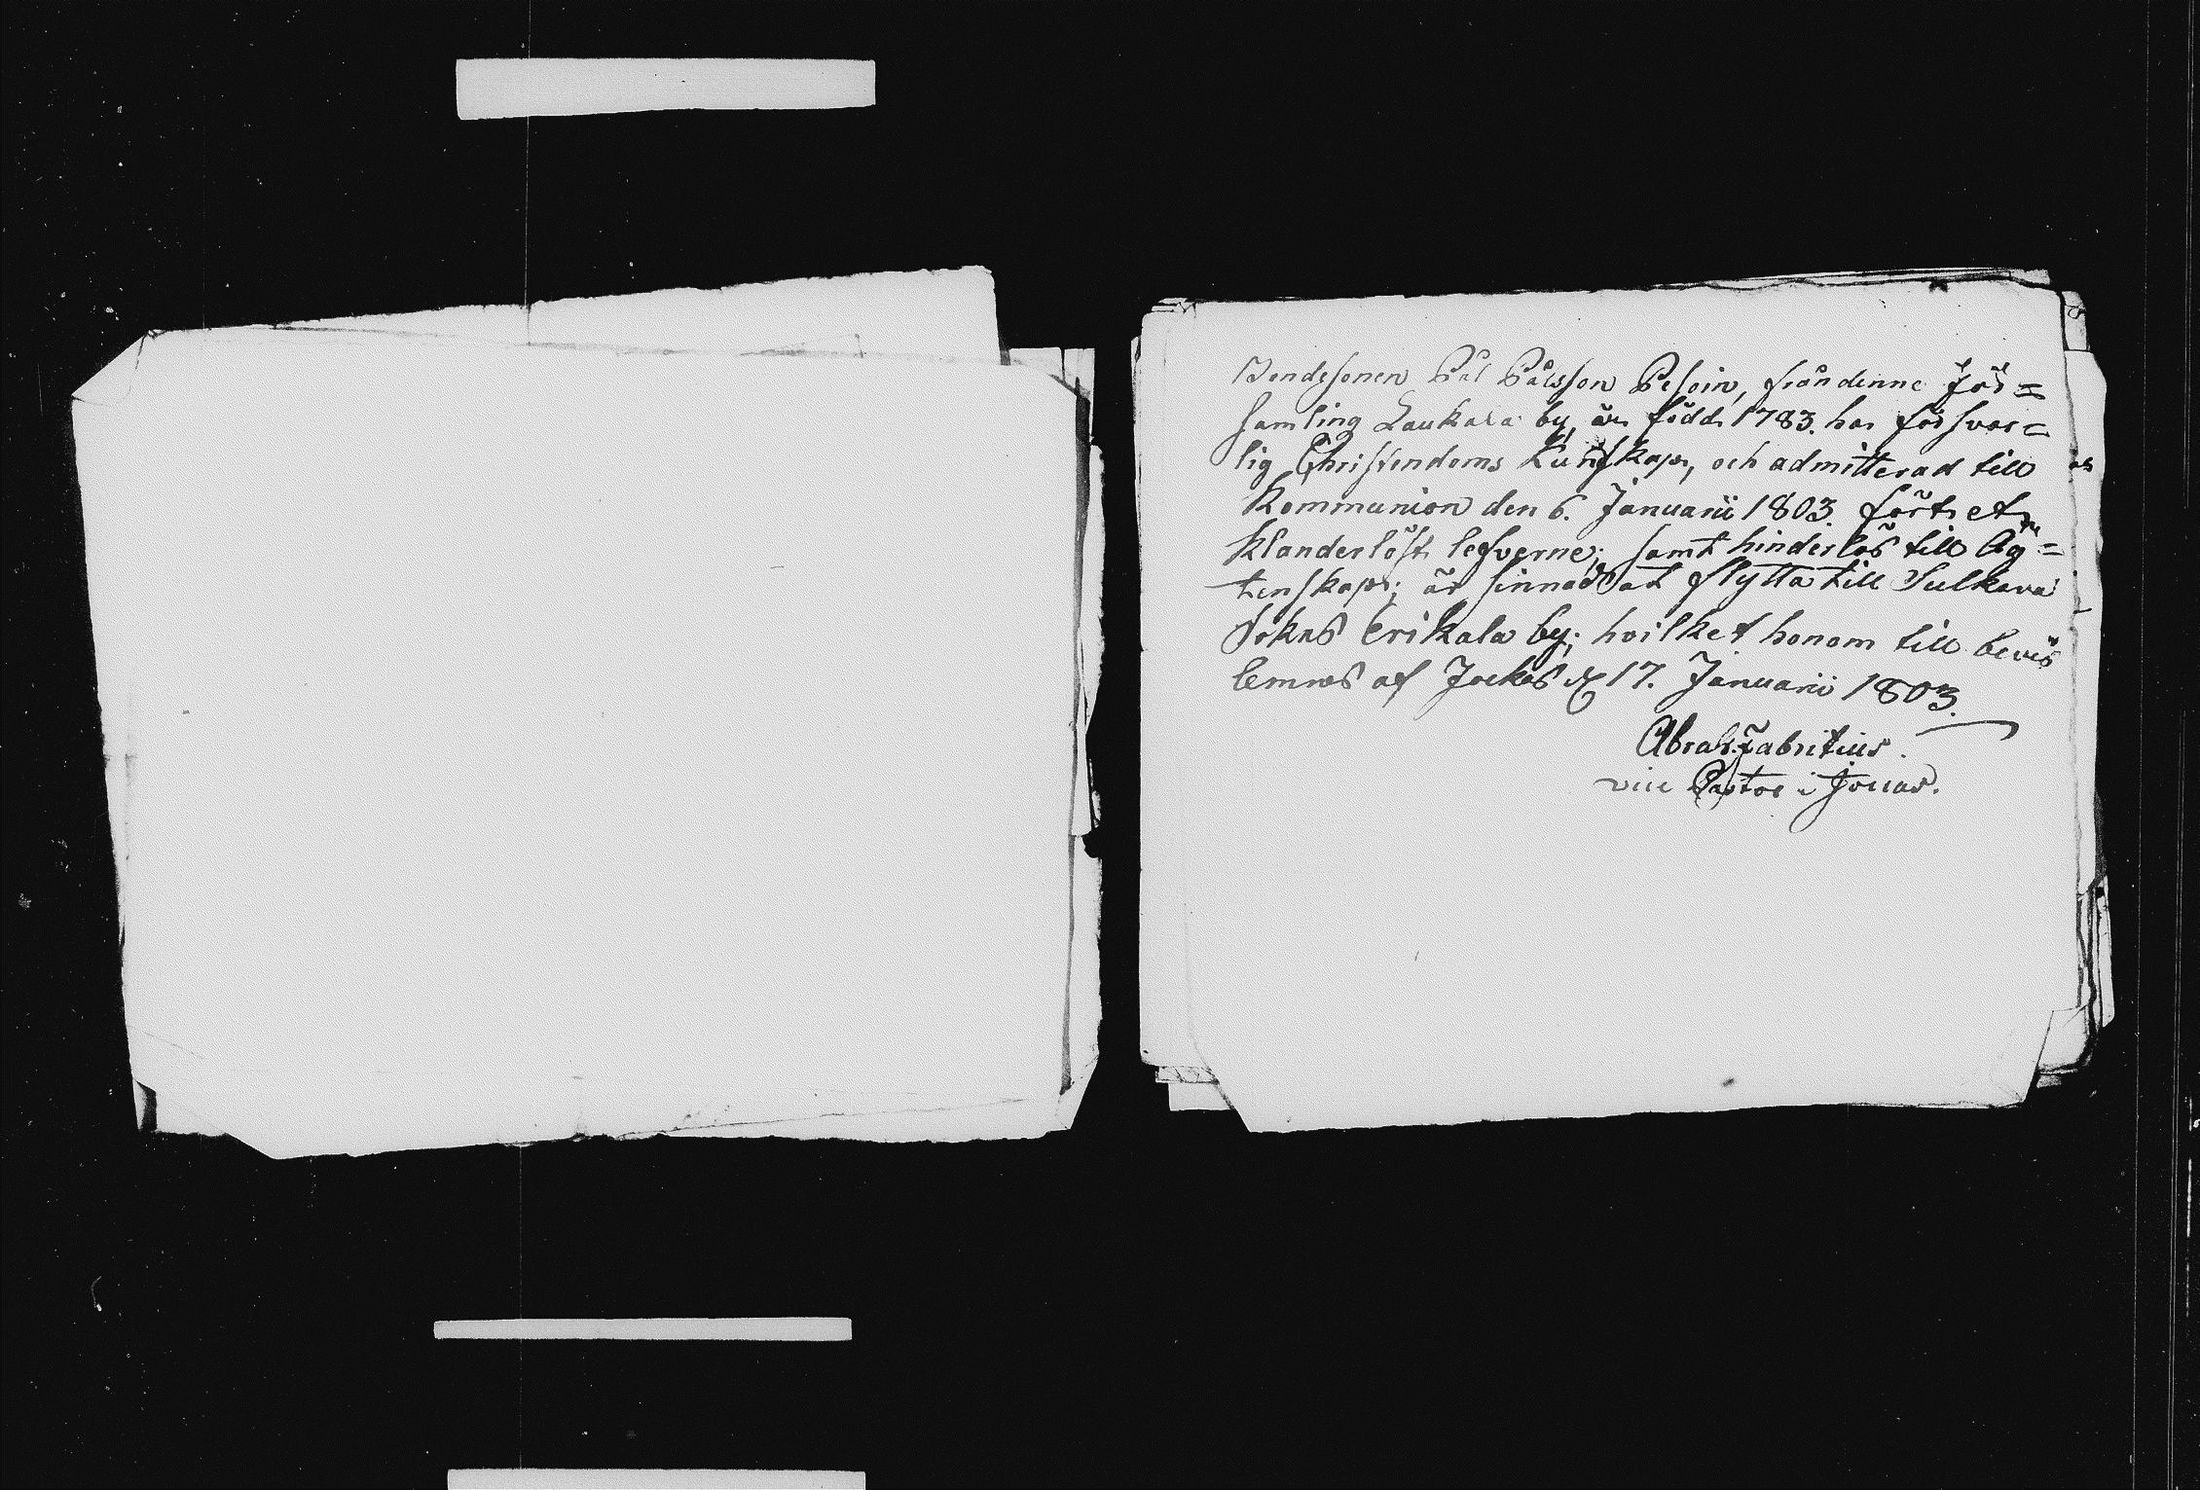 Bondesonen Pål Pålsson Pesoin, från denne för=
samling Laukala by, är född 1783. har försvar=
lig Christendoms Kunskap, och admitterad till
Kommunion den 6. Januarii 1803. fört et
klanderlöst lefverne; samt hinderlös till Äg=
tenskap; är sinnad at flytta till Sulkava
Sokns Erikala by; hvilket honom till bevis
lemnas af Jockas d 17. Januarii 1803.
Abrah. Fabritius.
vice Pastor i Jocas.